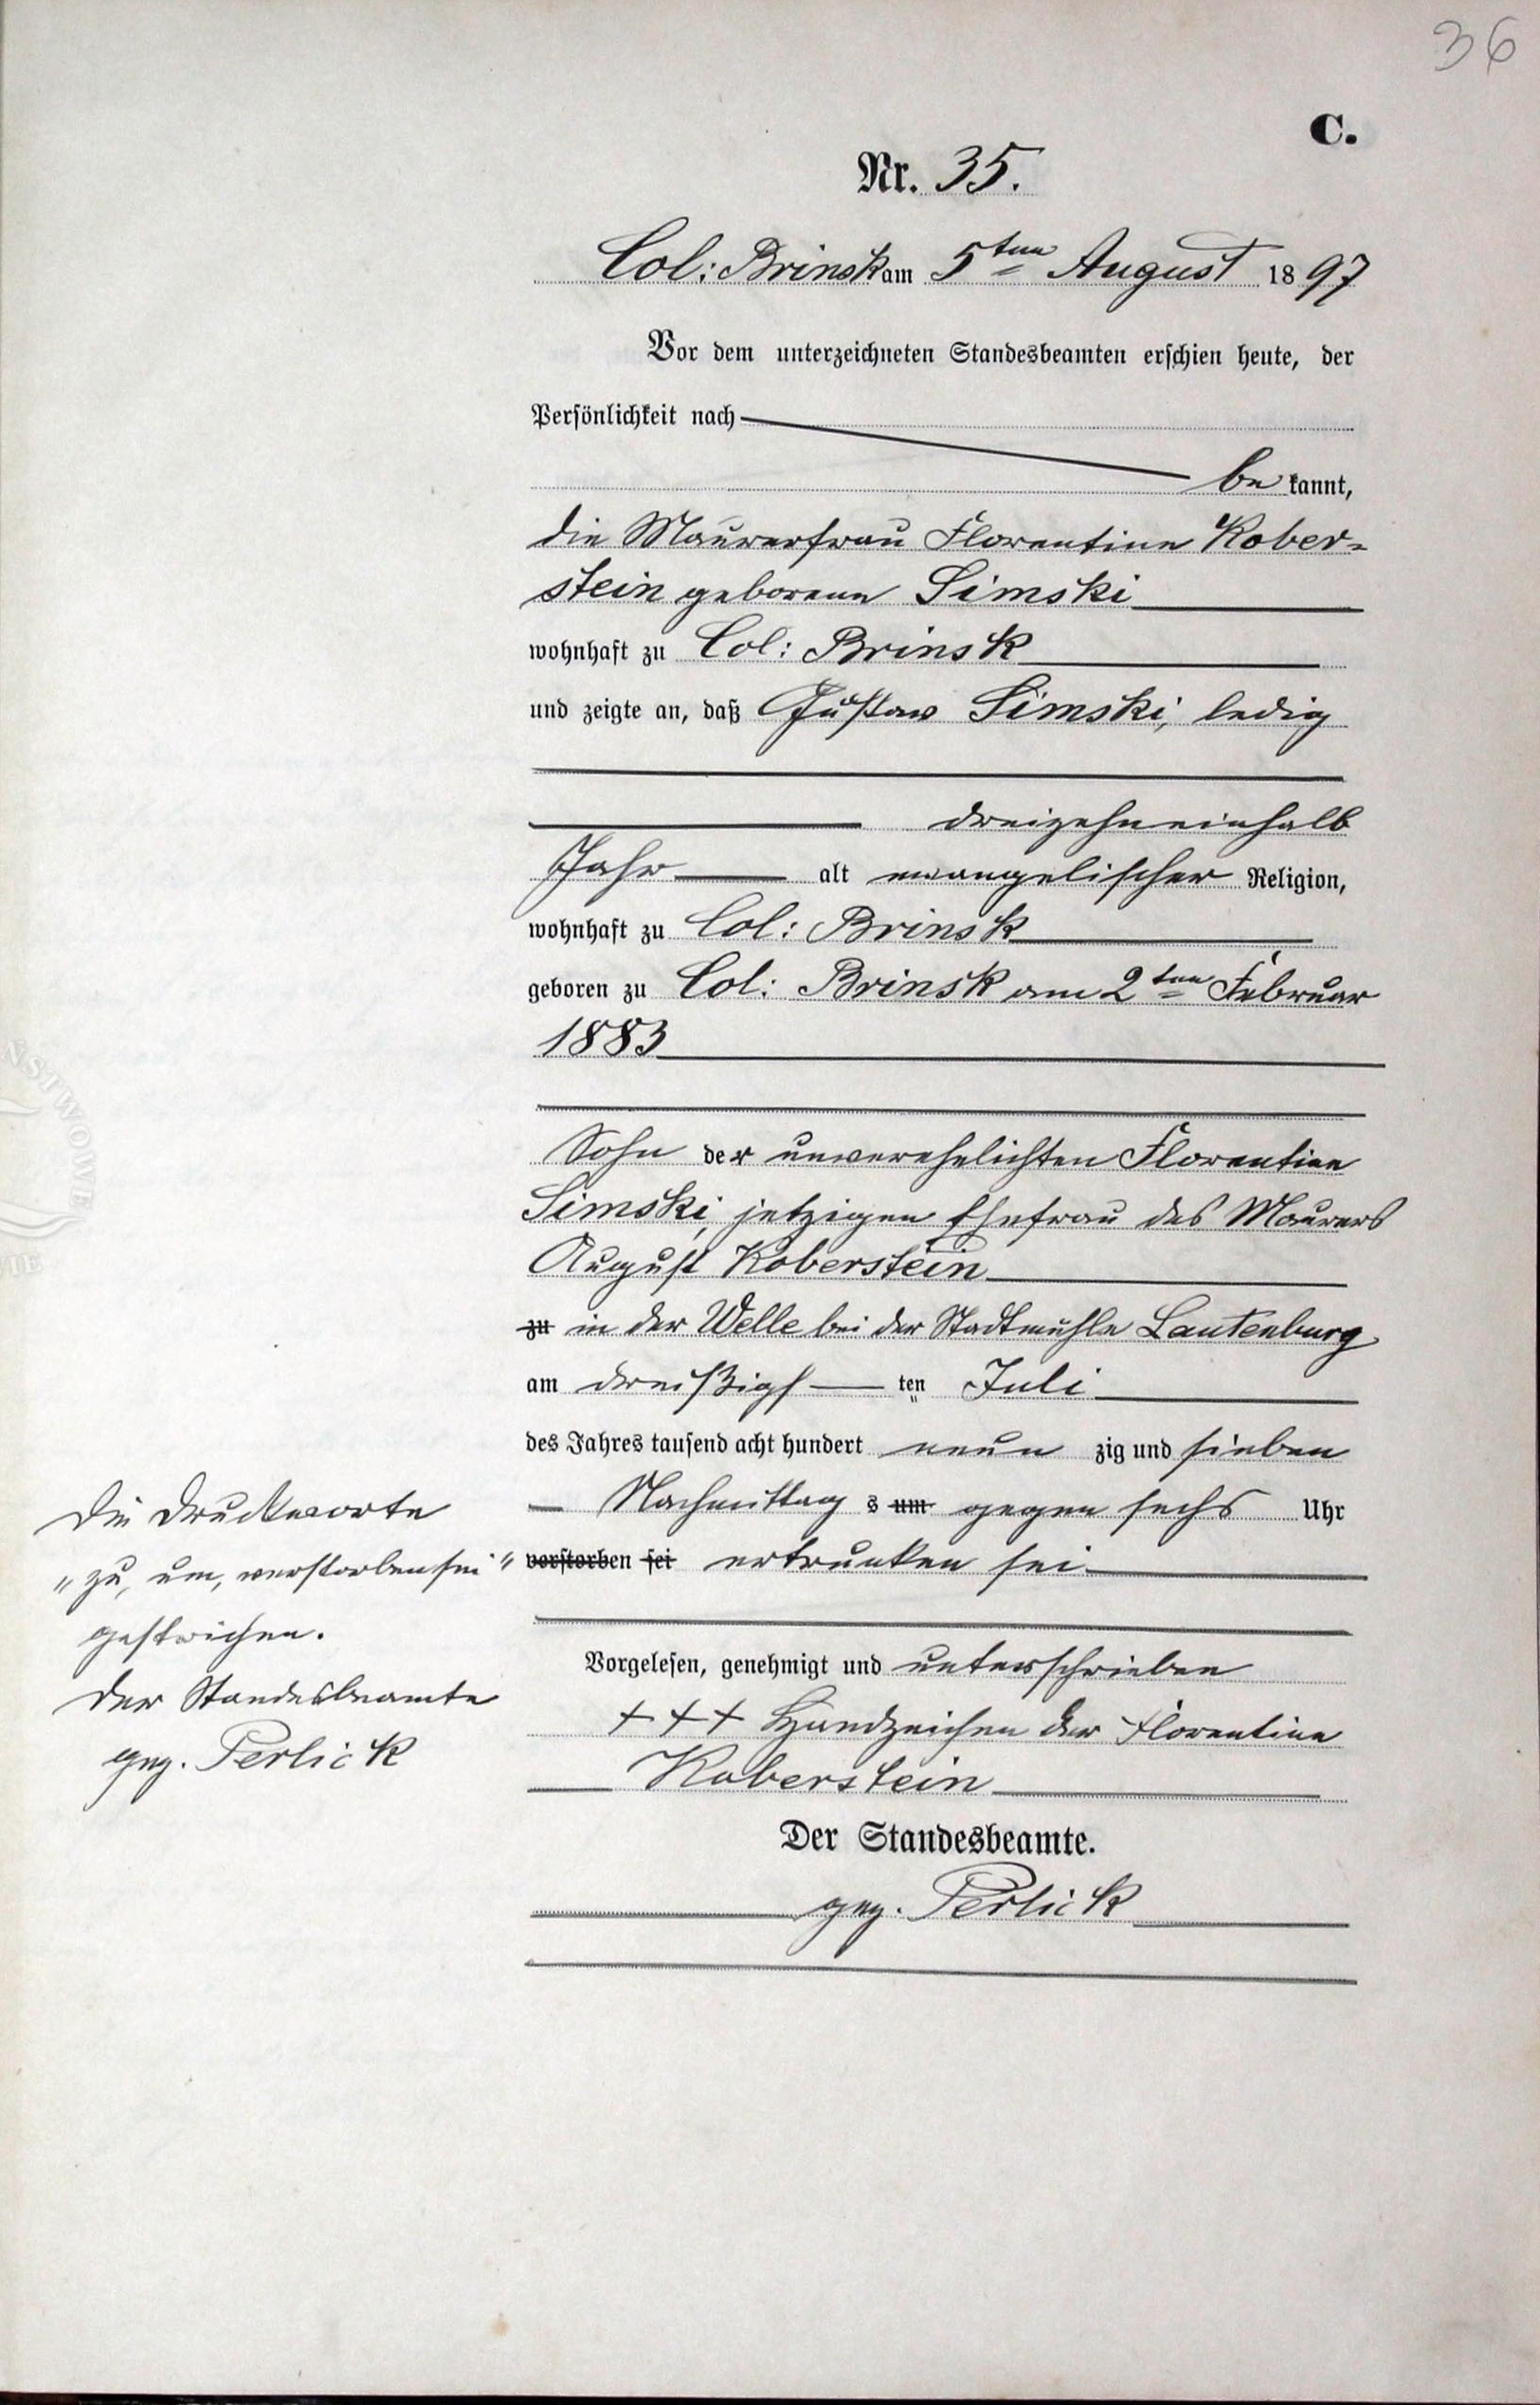 36
C.
Nr. 35.
Col: Brinsk am 5ten August 1897
Vor dem unterzeichneten Standesbeamten erschien heute, der
Persönlichkeit nach
be kannt,
die Maurerfrau Florentine Kober-
stein geborene Simski
wohnhaft zu Col: Brinsk
und zeigte an, daß Gustav Simski, ledig
dreizehneinhalb
Jahr alt evangelischer Religion,
wohnhaft zu Col: Brinsk
geboren zu Col: Brinsk am 2ten Februar
1883
Sohn der unverehelichten Florentine
Simski, jetzigen Ehefrau des Maurers
August Koberstein
zu in der Welle bei der Stadtmühle Lautenburg
am dreißigs ten Juli
des Jahres tausend acht hundert neun zig und sieben
Nachmittag s um gegen sechs Uhr
verstorben sei ertrunken sei
Die Druckworte
"zu, um, verstorben sei"
gestrichen.
Der Standesbeamte
gez. Perlick
Vorgelesen, genehmigt und unterschrieben
+++ Handzeichen der Florentine
Koberstein
Der Standesbeamte.
gez. Perlick